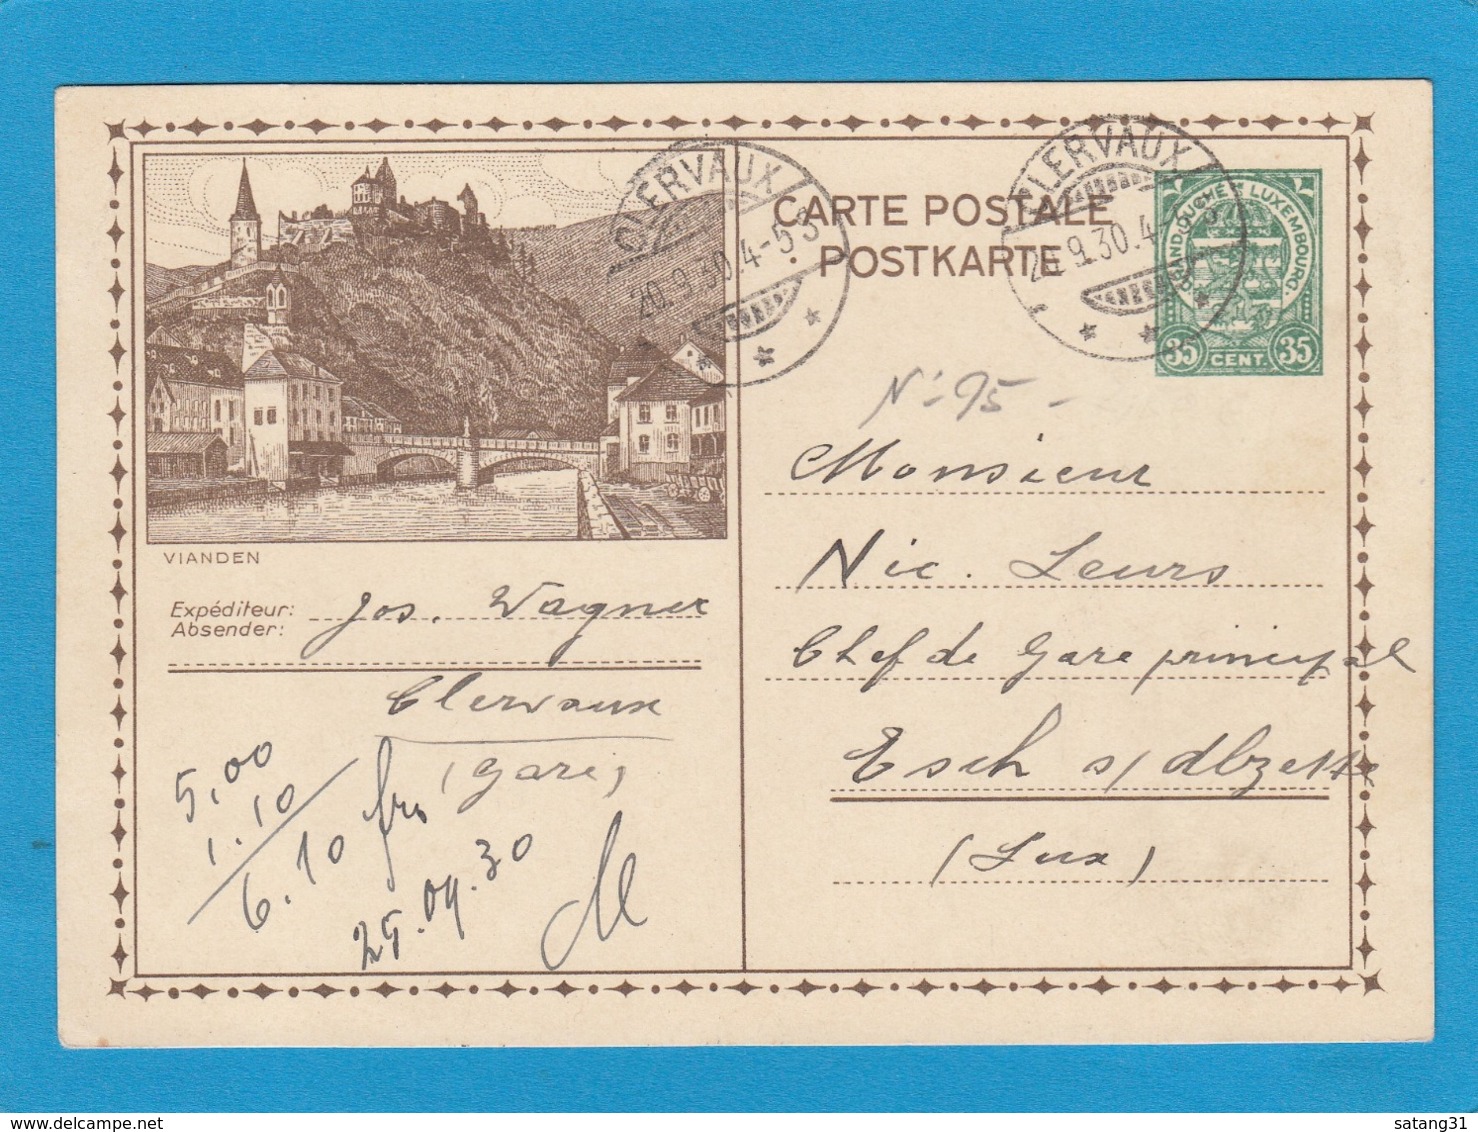 CLERVAUX
20.9.30.4-5 S
CLERVAUX
20.9.30.4-5 S
CARTE POSTALE
POSTKARTE
GRAND DUCHÉ DE LUXEMBOURG.
35 CENT. 35
VIANDEN
Expéditeur:
Absender:
Jos. Wagner
Clervaux
(Gare)
5,00
1.10
6.10 frs
25.09.30
N: 95 -
Monsieur
Nic. Leurs
Chef de Gare principal
Esch s/Alzette
(Lux)
satang31